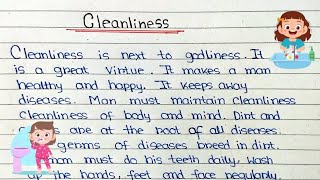 Cleanliness
Cleanliness is next to godliness. It
is a great virtue. It makes a man
healthy and happy. It keeps away
diseases. Man must maintain cleanliness
cleanliness of body and mind. Dirt and
are at the root of all diseases.
germs of diseases breed in dirt.
man must do his teeth daily, wash
up the hands, feet and face regularly.